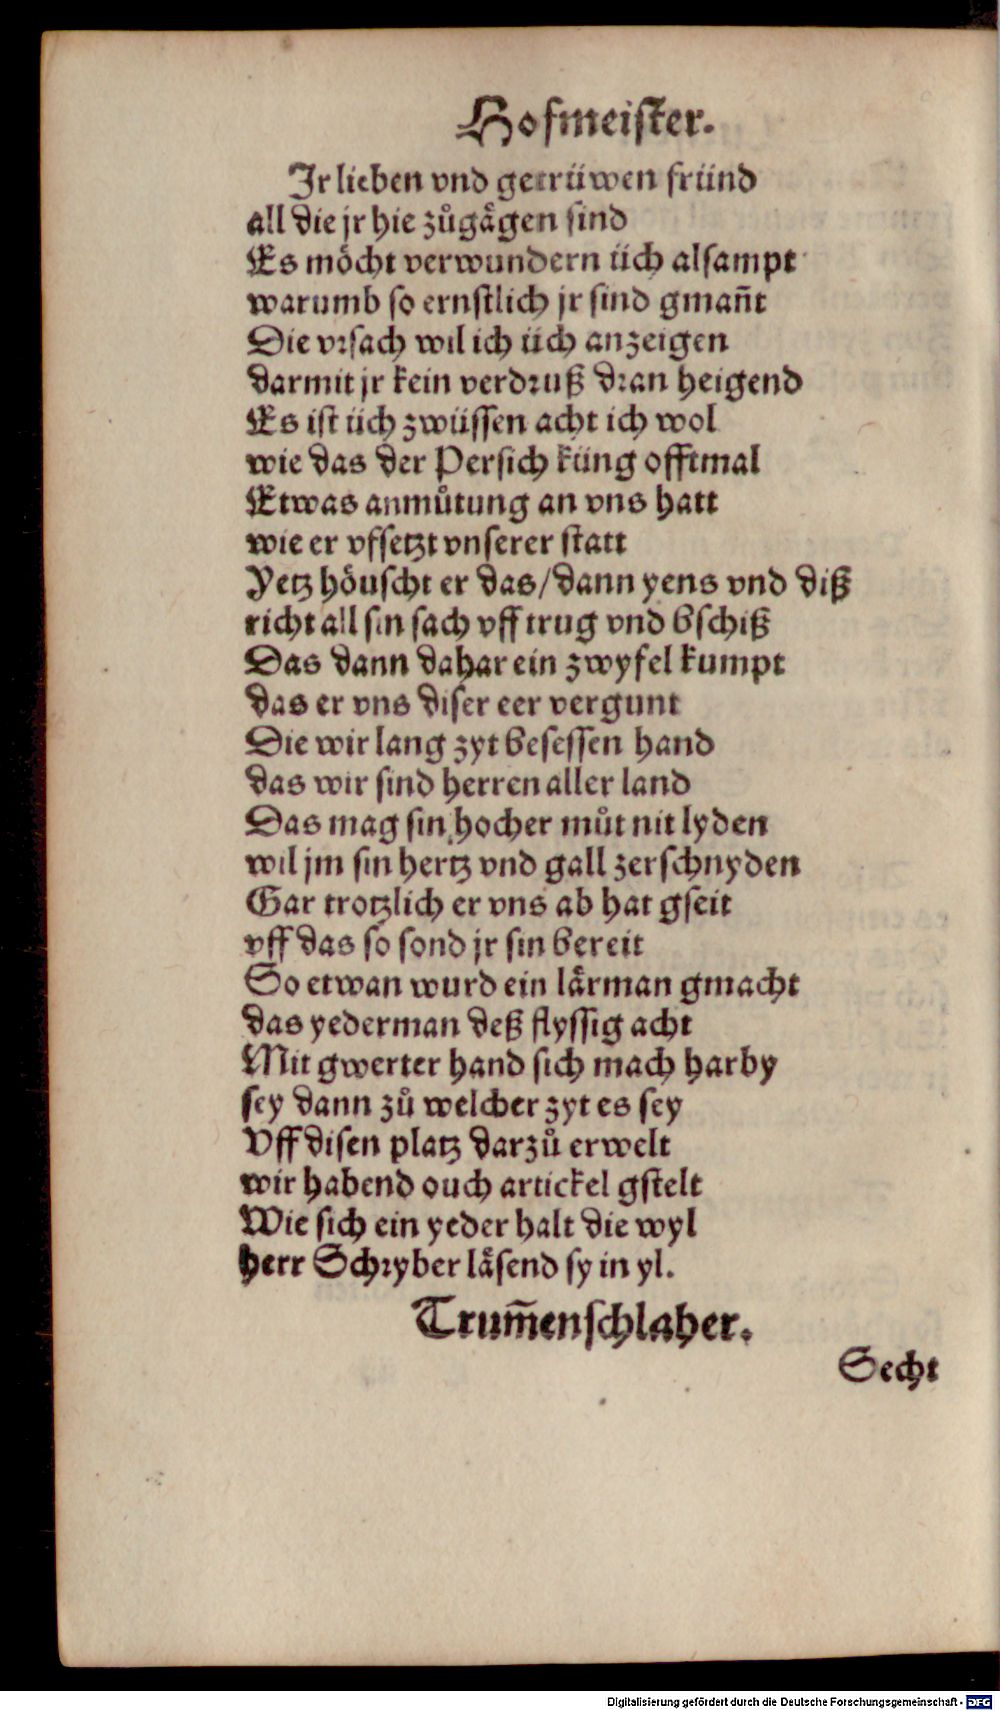 Hofmeister.
Jr lieben vnd getrüwen fründ
all die jr hie zůgågen sind
Es möcht verwundern üch alsampt
warumb so ernstlich jr sind gmañt
Die vrsach wil ich üch anzeigen
darmit jr kein verdruß dran heigend
Es ist üch zwüssen acht ich wol
wie das der Persich küng offtmal
Etwas anmůtung an vns hatt
wie er vfsetzt vnserer statt
Yetz höuscht er das/dann yens vnd diß
richt all sin sach vff trug vnd bschiß
Das dann dahar ein zwyfel kumpt
das er vns diser eer vergunt
Die wir lang zyt besessen hand
das wir sind herren aller land
Das mag sin hocher můt nit lyden
wil jm sin hertz vnd gall zerschnyden
Gar trotzlich er vns ab hat gseit
vff das so sond jr sin bereit
So etwan wurd ein lärman gmacht
das yederman deß flyssig acht
Mit gwerter hand sich mach harby
sey dann zů welcher zyt es sey
Vff disen platz darzů erwelt
wir habend ouch artickel gstelt
Wie sich ein yeder halt die wyl
herr Schryber läsend sy in yl.
Trum̃enschlaher.
Secht
Digitalisierung gefördert durch die Deutsche Forschungsgemeinschaft - DFG